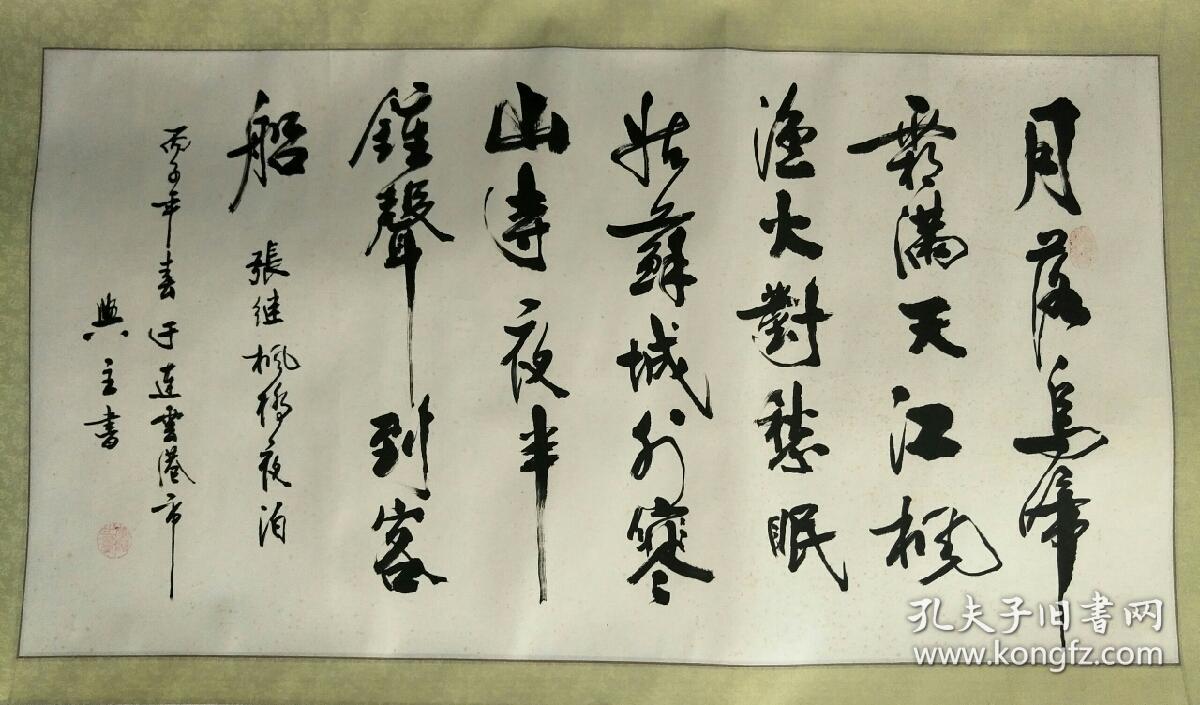 月落烏啼
霜滿天江楓
漁火對愁眠
姑蘇城外寒
山寺夜半
鐘聲到客
船
張继楓橋夜泊
丙子年春于連雲港市
興主書
孔夫子旧书网
www.kongfz.com